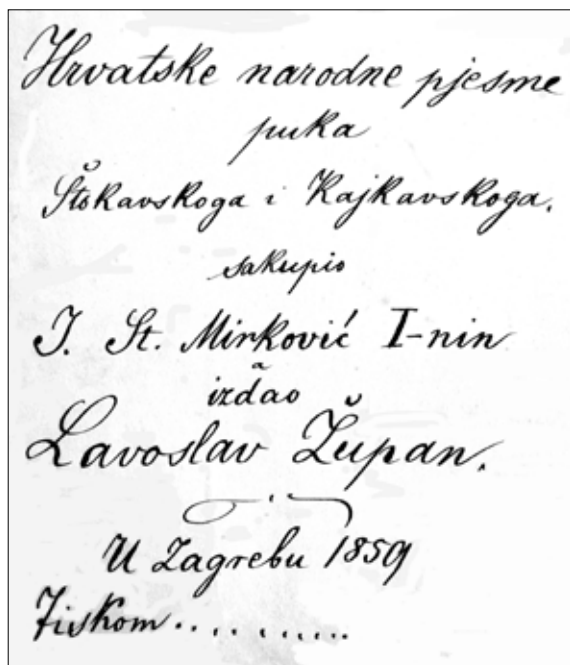 Hrvatske narodne pjesme
puka
Štokavskoga i Kajkavskoga.
sakupio
J. St. Mirković I-nin
a
izdao
Lavoslav Župan.
U Zagrebu 1859
Tiskom...........